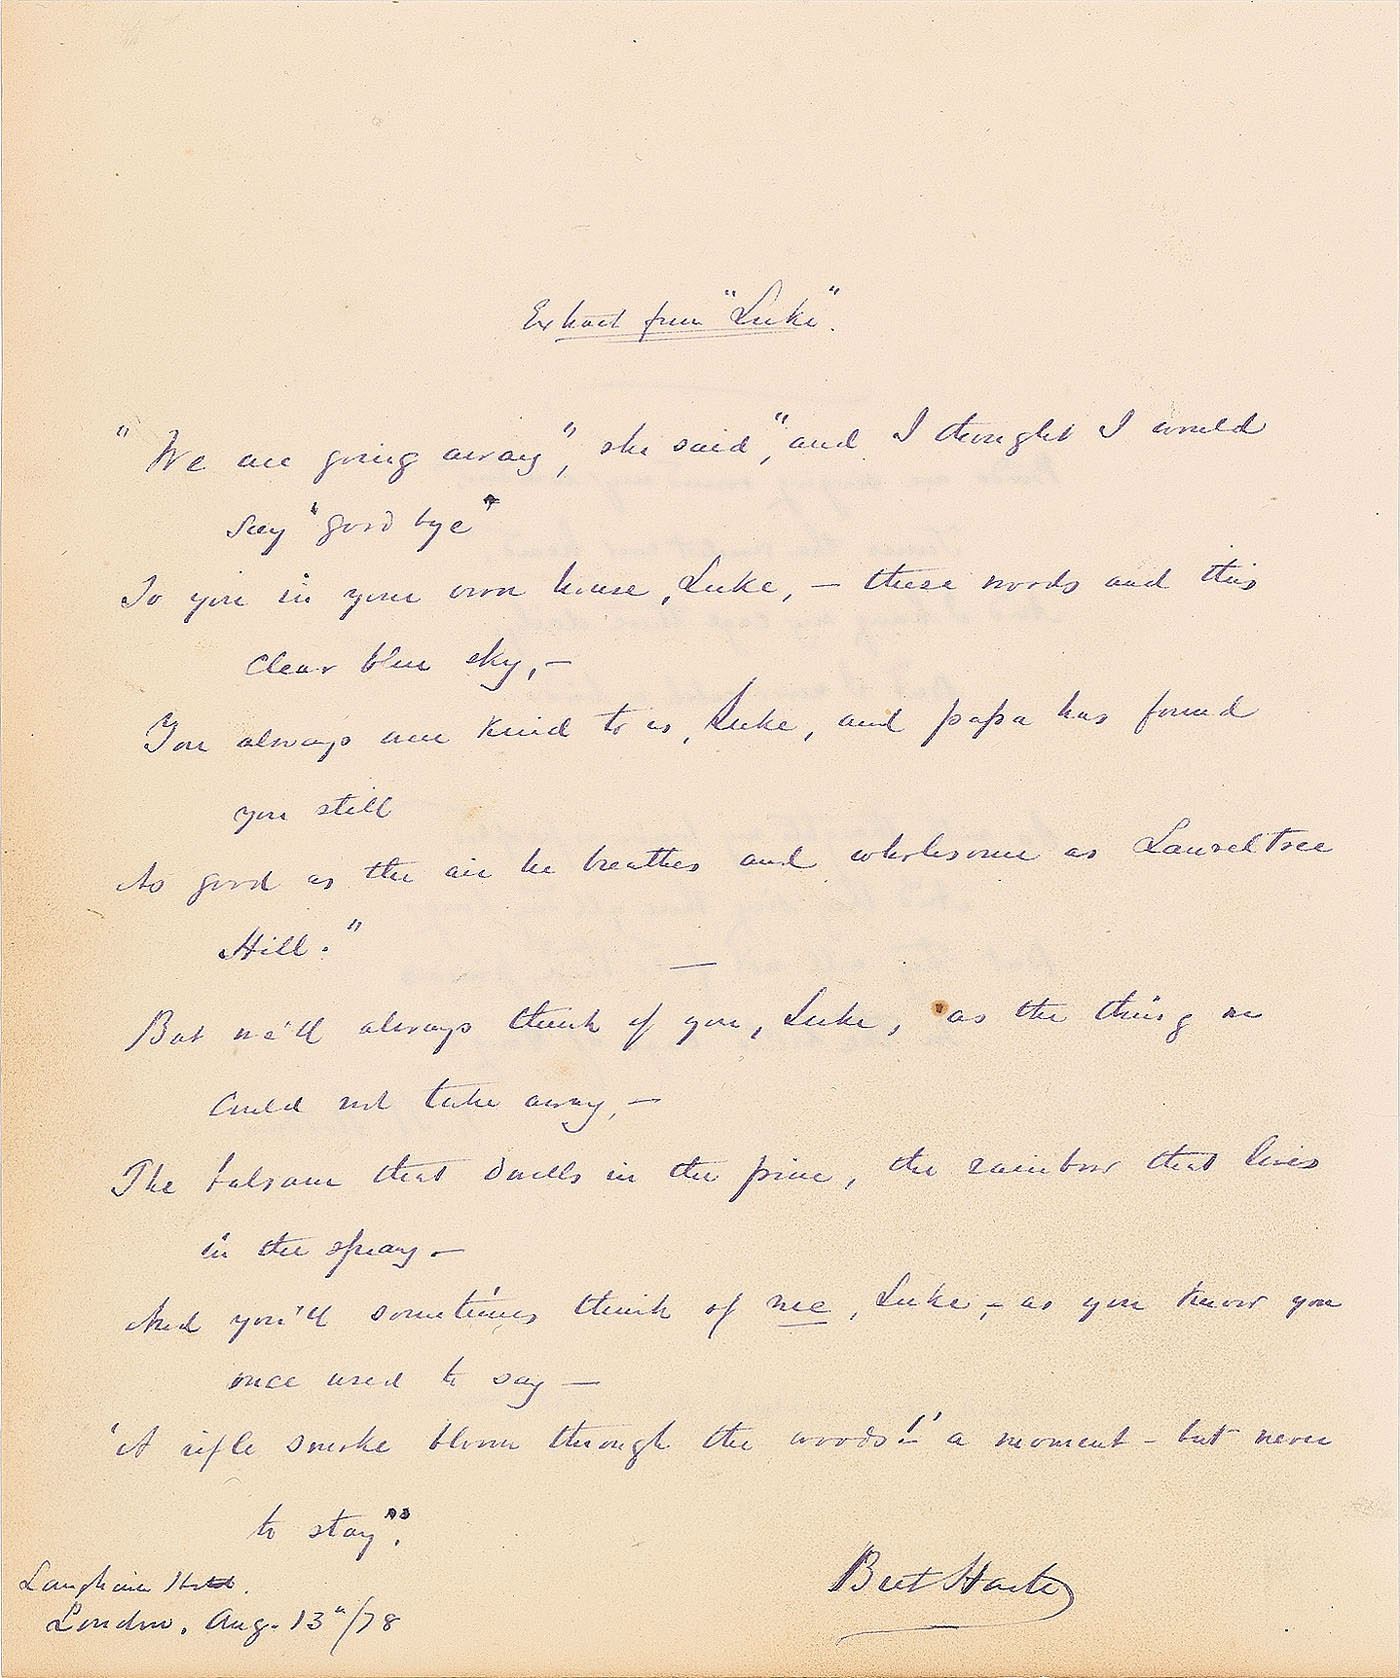 Extract from "Luke".
"We are going away", she said", and I thought I would
say "good bye"
To you in your own house, Luke, — these woods and this
clear blue sky, —
You always were kind to us, Luke, and papa has found
you still
As good as the air he breathes and wholesome as Laurel Tree
Hill."
But we'll always think of you, Luke, as the thing we
could not take away, —
The balsam that dwells in the pine, the rainbow that lives
in the spray —
And you'll sometimes think of me, Luke, — as you know you
once used to say —
'A rifle smoke blown through the woods!' — a moment — but never
to stay".
Bret Harte
Langham Hotel.
London. Aug. 13th/78